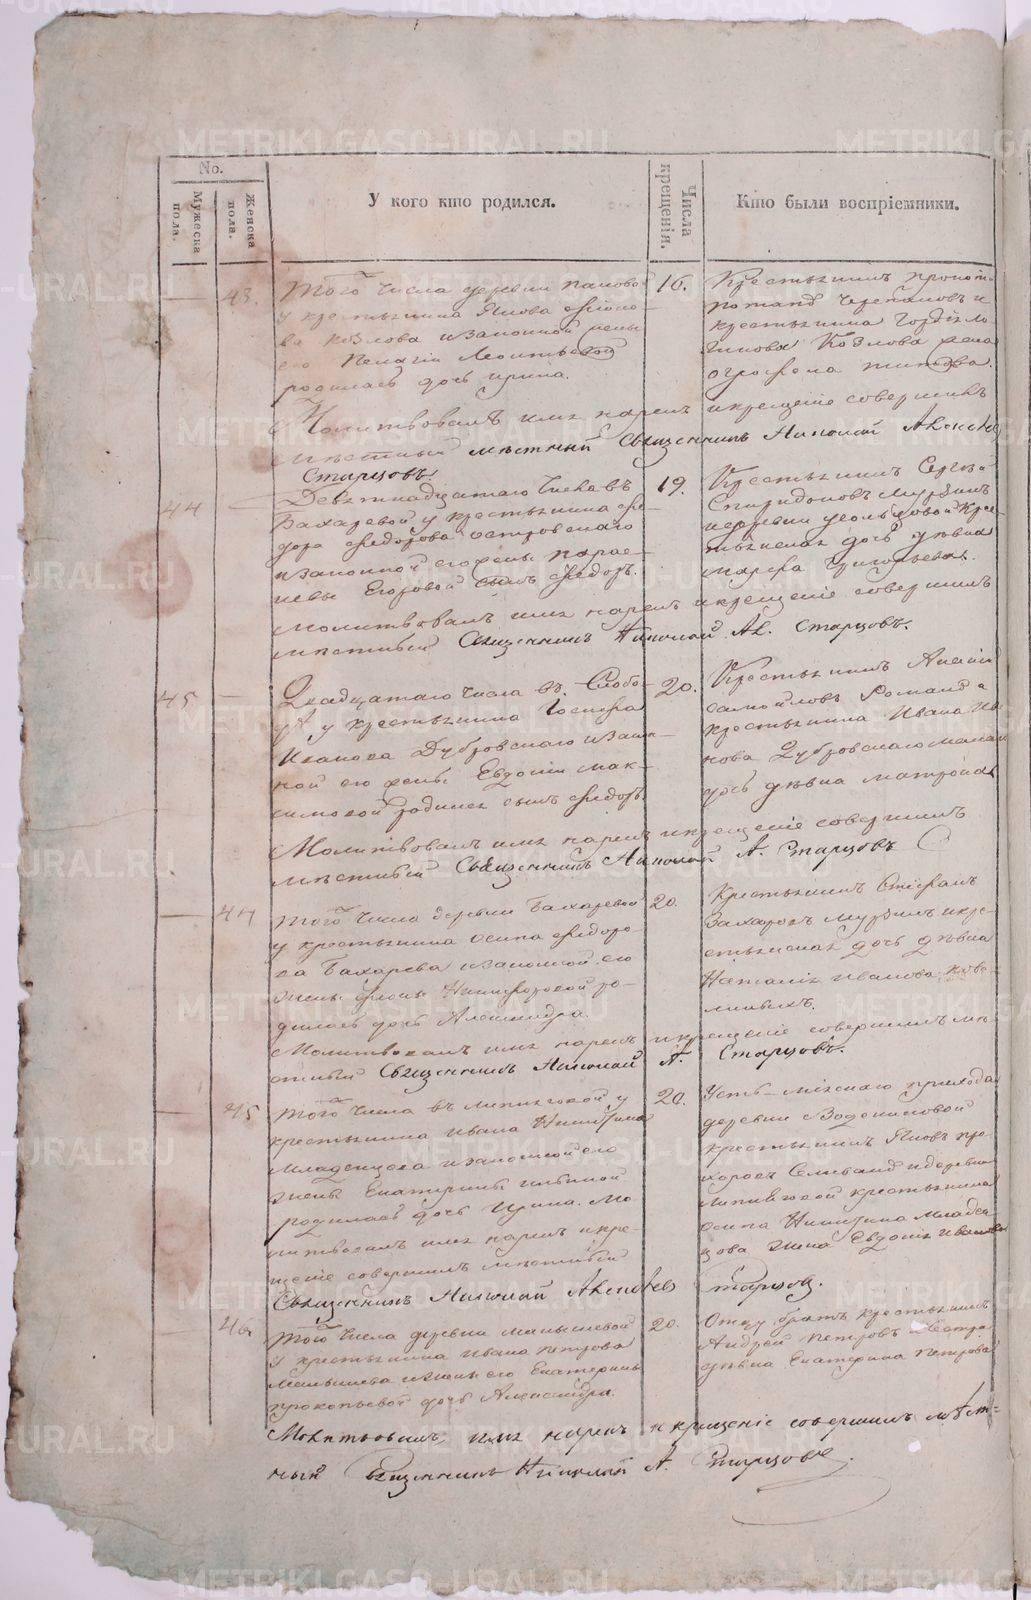 No.
Мужеска пола.
Женска пола.
У кого кто родился.
Числа крещенія.
Кто были воспріемники.
43.
Того числа деревни пановой
у крестьянина Якова
ва Козлова изаконной жены
его Пелагіи Леонтьевой
родилась дочь ирина.
16.
Крестьянинъ
Черепановъ и
крестьянина Гордѣя Ло
гинова Козлова жена
Молитвовалъ имя нарекъ икрещеніе совершилъ
мѣстный Священникъ Николай Алексѣев
Старцовъ.
44
Девятнадцатаго Числа въ
Бахаревой у крестьянина Фе-
дора Федорова островскаго
изаконной его жены парас-
кевы Егоровой сынъ Федоръ.
19.
Крестьянинъ Сергѣй
Спиридоновъ Мурзинъ
идеревни усольцовой Крес-
тьянская дочь дѣвка
марфа Григорьева.
Молитвовалъ имя нарекъ икрещеніе совершилъ
мѣстный Священникъ Николай Ал. Старцовъ.
45
Двадцатаго Числа въ Слобо-
дѣ у крестьянина
Иванова Дубровскаго изакон-
ной его жены Евдокіи мак-
симовой родился сынъ Федоръ.
20.
Крестьянинъ Алексій
самойловъ
крестьянина Ивана Ива
нова Дубровскаго
дочь дѣвка матрона
Молитвовалъ имя нарекъ икрещеніе совершилъ
мѣстный Священникъ Николай А. Старцовъ
44
Того Числа деревни Бахаревой
у крестьянина осипа Федоро-
ва Бахарева изаконной его
жены Никифоровой ро-
дилась дочь Александра.
20.
Крестьянинъ Стефанъ
Захаровъ Мурзинъ икре-
стьянская дочь дѣвка
Наталія иванова
Молитвовалъ имя нарекъ икрещеніе совершилъ мѣ
стный Священникъ Николай А. Старцовъ.
45
Того Числа въ липиговой у
крестьянина ивана Никитина
Младенцова изаконной его
жены Екатерины ильиной
родилась дочь Ирина. Мо
литвовалъ имя нарекъ икре-
щеніе совершилъ мѣстный
Священникъ Николай Алексѣев Старцов.
20.
Усть-міяскаго прихода
деревни Воденниковой
крестьянинъ Яковъ про-
хоровъ идеревни
крестьянина
осипа Никитина Младен
цова жена Евдокія иванова
46
Того Числа деревни малышевой
у крестьянина ивана петрова
Малышева ижены его Екатерины
прокопьевой дочь Александра.
20.
Отцу братъ крестьянинъ
Андрей петровъ исестра
дѣвка Екатерина петрова
Молитвовалъ имя нарекъ икрещеніе совершилъ мѣст-
ный Священникъ Николай А. Старцовъ.
METRIKI.GASO-URAL.RU